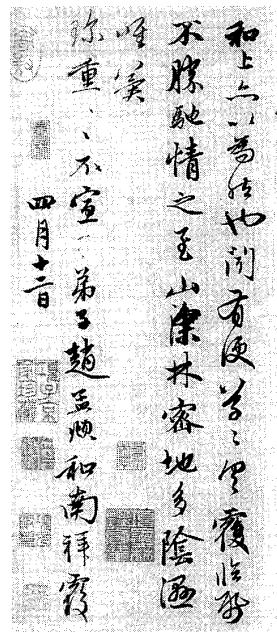 和上亦以為然也閒有便草〻具覆臨紙
不勝馳情之至山深林密地多陰濕
唯冀
珍重〻〻不宣〻〻弟子趙孟頫和南拜覆
四月十二日